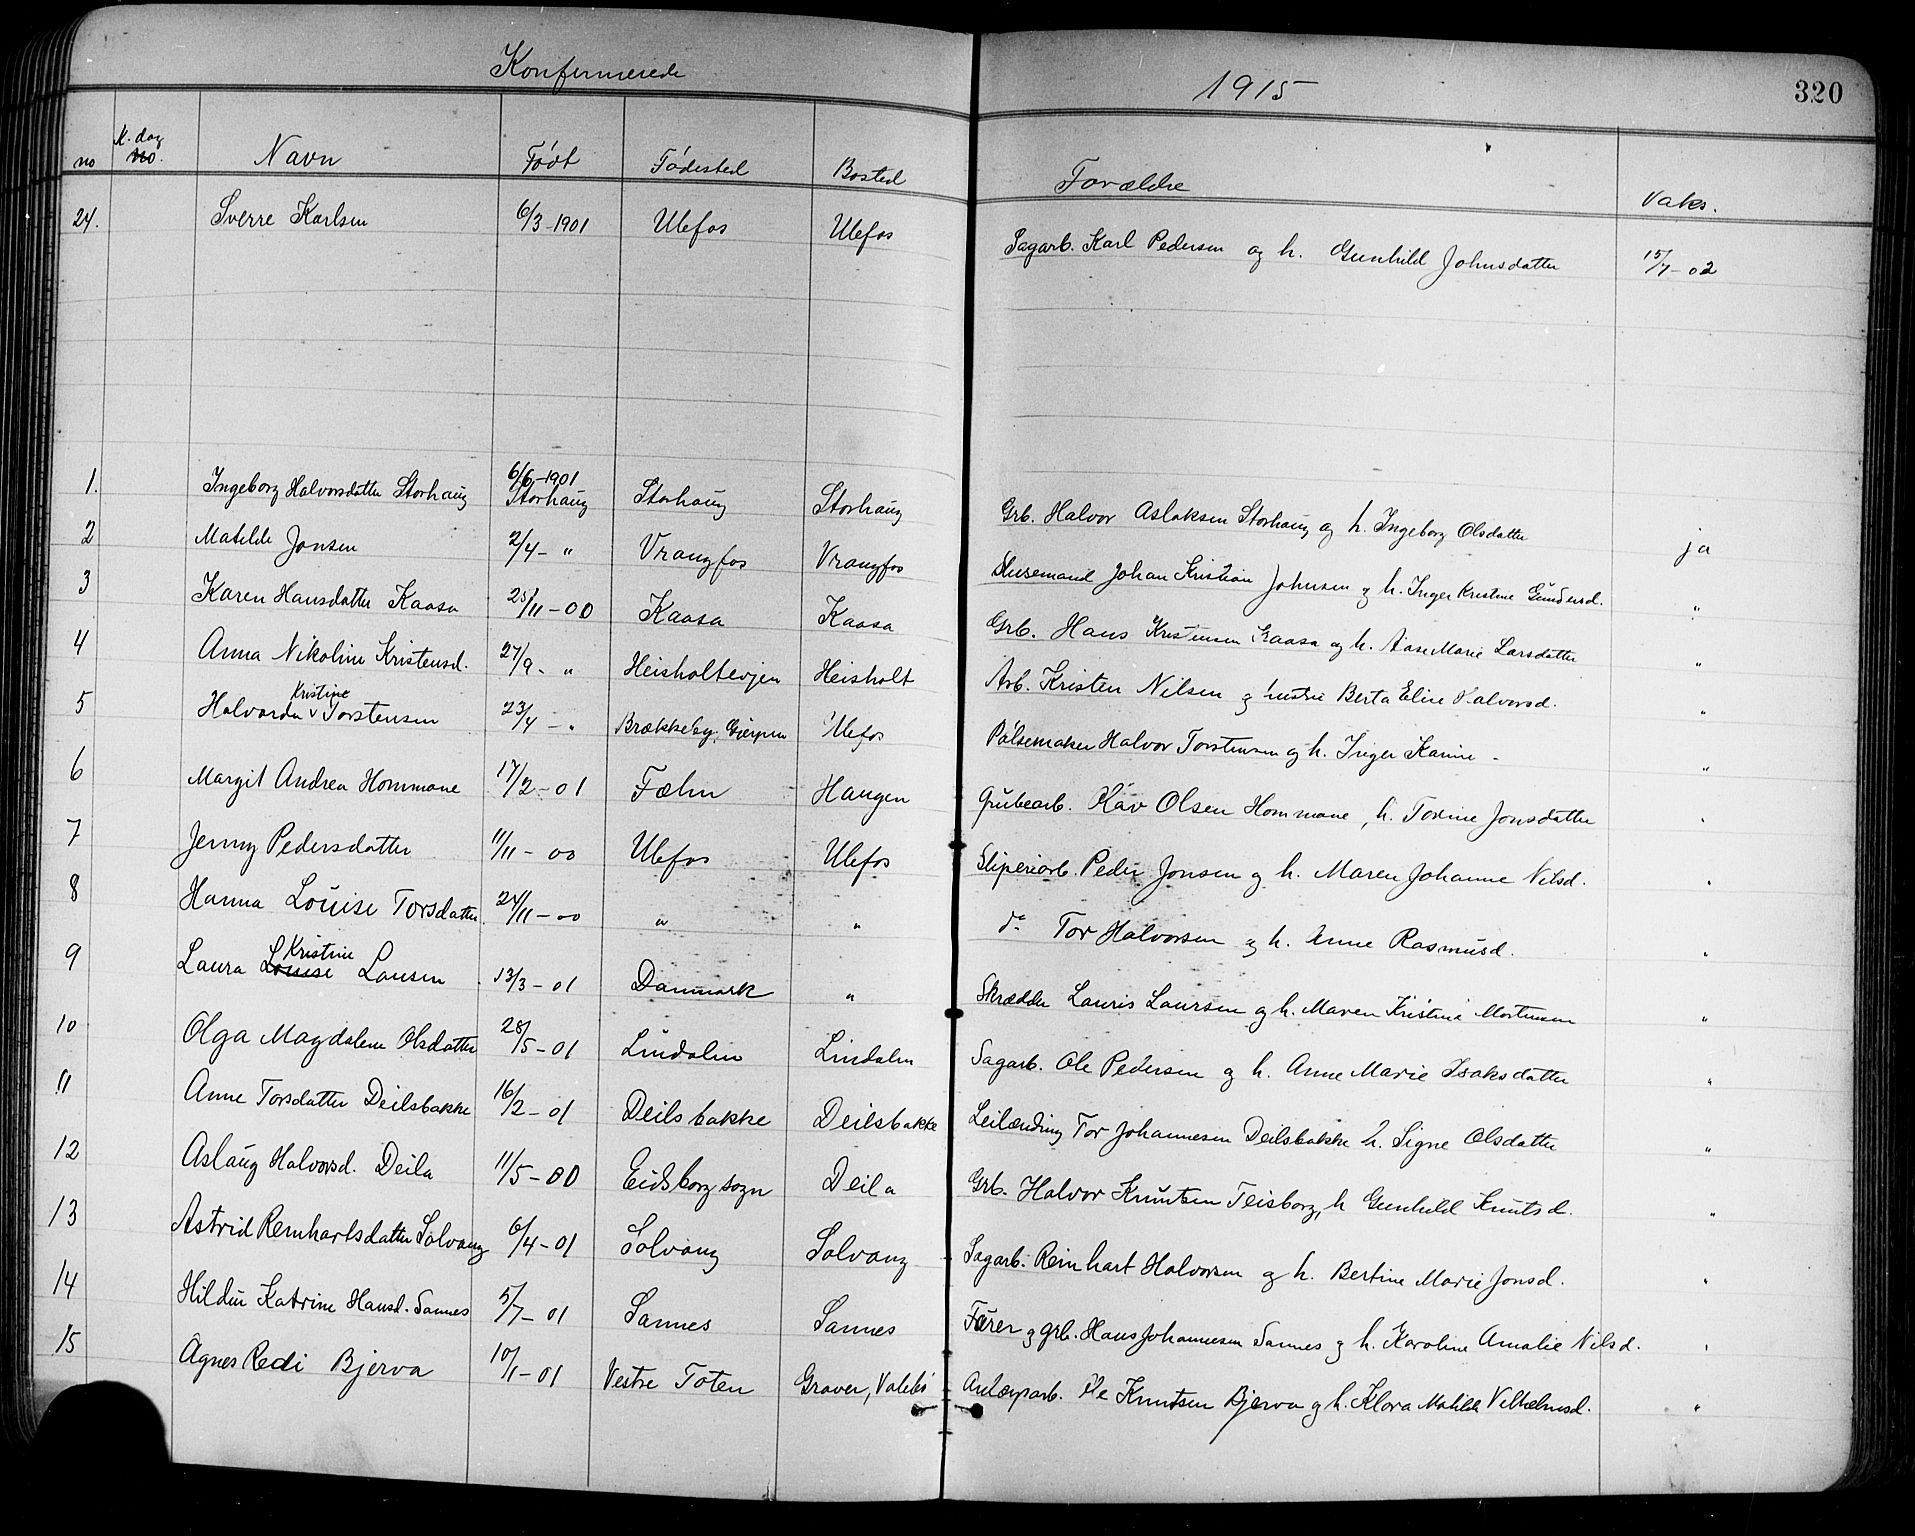 Konfirmerede 1915 320
no K. dag no. Navn Født Fødested Bosted Forældre Vaks.
24. Sverre Karlsen 6/3-1901 Ulefos Ulefos Sagarb. Karl Pedersen og h. Gunhild Johnsdatter 15/7-02
1. Ingeborg Halvorsdatter Storhaug 6/6-1901 Storhaug Storhaug Storhaug Grb. Halvor Aslaksen Storhaug og h. Ingeborg Olsdatter ja
2 Matilde Jonsen 2/4- " Vrangfos Vrangfos Slusemand Johan Kristian Johnsen og h. Inger Kristine Gundersd. "
3 Karen Hansdatter Kaasa 25/11-00 Kaasa Kaasa Grb. Hans Kristensen Kaasa og h. Aase Marie Larsdatter "
4 Anna Nikoline Kristensd. 27/9- " Heisholtevjen Heisholt Arb. Kristen Nilsen og hustru Berta Elise Halvorsd. "
5 Halvorda Kristine Torstensen 23/4 - " Brækkeby, Gjerpen Ulefos Pølsemaker Halvor Torstensen og h. Inger Karine - "
6 Margit Andrea Hommane 17/2-01 Fæhn Haugen Grubearb. Olav Olsen Hommane, h. Torine Jonsdatter "
7 Jenny Pedersdatter 11/11-00 Ulefos Ulefos Sliperiarb. Peder Jonsen og h. Maren Johanne Nilsd. "
8 Hanna Louise Torsdatter 24/11-00 " " do Tor Halvorsen og h. Anne Rasmusd. "
9 Laura Louise Kristine Lausen 13/3-01 Danmark " Skrædder Lauris Laursen og h. Maren Kristina Mortensen "
10 Olga Magdalene Olsdatter 28/5-01 Lindalen Lindalen Sagarb. Ole Pedersen og h. Anne Marie Isaksdatter "
11 Anne Torsdatter Deilsbakke 16/2-01 Deilsbakke Deilsbakke Leilænding Tor Johannesen Deilsbakke h. Signe Olsdatter "
12 Aslaug Halvorsd. Deila 11/5-00 Eidsborg sogn Deila Grb. Halvor Knutsen Teisborg, h Gunhild Knutsd. "
13 Astrid Reinhartsdatter Solvang 6/4-01 Solvang Solvang Sagarb. Reinhart Halvorsen og h. Bertine Marie Jonsd. "
14 Hildur Katrine Hansd. Sannes 5/7-01 Sannes Sannes Fører og grb. Hans Johannesen Sannes og h. Karoline Amalie Nilsd. "
15 Agnes Redi Bjerva 10/1-01 Vestre Toten Graver, Valebø Anlægsarb. Ole Knutsen Bjerva og h. Klara Matilde Vilhelmsd. "